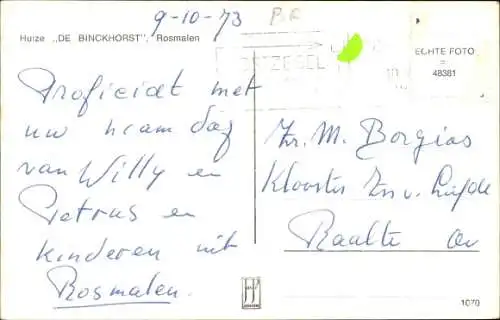 9-10-73
Huize „DE BINCKHORST”, Rosmalen
ECHTE FOTO
=
48381
POSTZEGEL
Proficiat met
uw naam dag
van Willy en
Petrus en
kinderen uit
Rosmalen.
Zr. M. Borgias
Klooster Zrs v. Liefde
Raalte Ov
1070